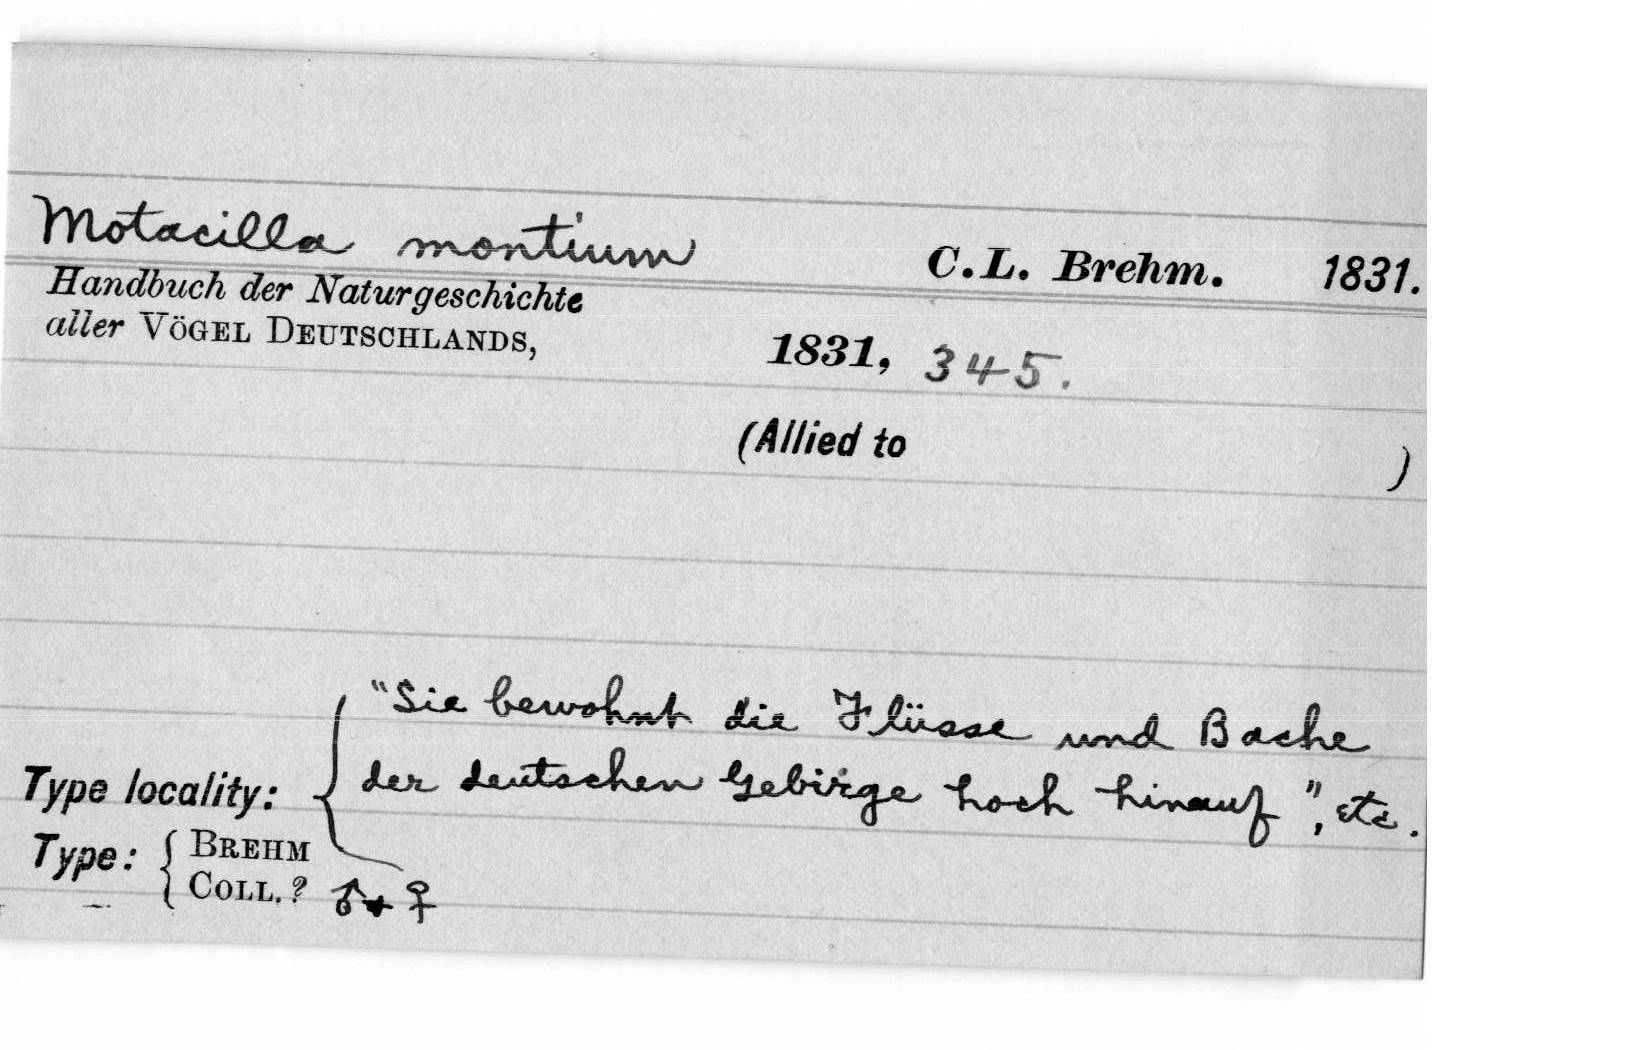 Motacilla montium C.L. Brehm. 1831.
Handbuch der Naturgeschichte
aller VÖGEL DEUTSCHLANDS, 1831, 345.
(Allied to )
"Sie bewohnt die Flüsse und Bache
Type locality: { der deutschen Gebirge hoch hinauf", etc.
Type: { BREHM
COLL. ? ♂ + ♀